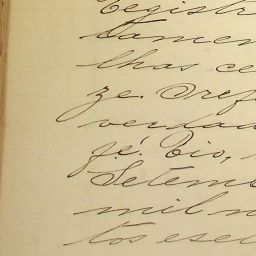 Registr
tamen
lhas ce
ze. O ref
verdad
fé. Rio,
Setemb
mil n
tos e se